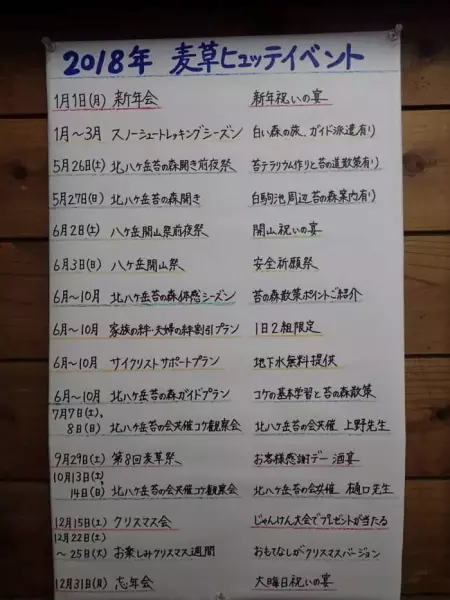 2018年 麦草ヒュッテイベント
1月1日(月) 新年会 新年祝いの宴
1月〜3月 スノーシュートレッキングシーズン 白い森の旅、ガイド派遣有り
5月26日(土) 北八ヶ岳苔の森開き前夜祭 苔テラリウム作りと苔の道散策有り
5月27日(日) 北八ヶ岳苔の森開き 白駒池周辺苔の森案内有り
6月2日(土) 八ヶ岳開山祭前夜祭 開山祝いの宴
6月3日(日) 八ヶ岳開山祭 安全祈願祭
6月〜10月 北八ヶ岳苔の森体感シーズン 苔の森散策ポイントご紹介
6月〜10月 家族の絆・夫婦の絆割引プラン 1日2組限定
6月〜10月 サイクリストサポートプラン 地下水無料提供
6月〜10月 北八ヶ岳苔の森ガイドプラン コケの基本学習と苔の森散策
7月7日(土)、
8日(日) 北八ヶ岳苔の会共催コケ観察会 北八ヶ岳苔の会共催 上野先生
9月29日(土) 第8回麦草祭 お客様感謝デー 酒宴
10月13日(土)、
14日(日) 北八ヶ岳苔の会共催コケ観察会 北八ヶ岳苔の会共催 樋口先生
12月15日(土) クリスマス会 じゃんけん大会でプレゼントが当たる
12月22日(土)
〜25日(火) お楽しみクリスマス週間 おもてなしがクリスマスバージョン
12月31日(月) 忘年会 大晦日祝いの宴